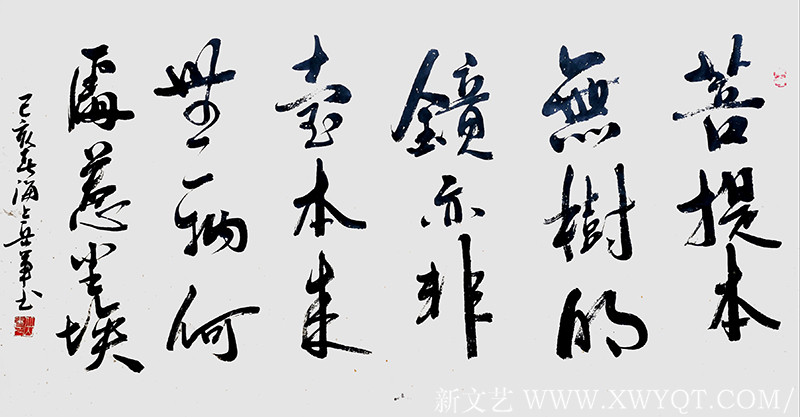 菩提本
無樹明
鏡亦非
臺本来
無一物何
處惹尘埃
己亥春海上岳军书
新文艺 WWW.XWYQT.COM/